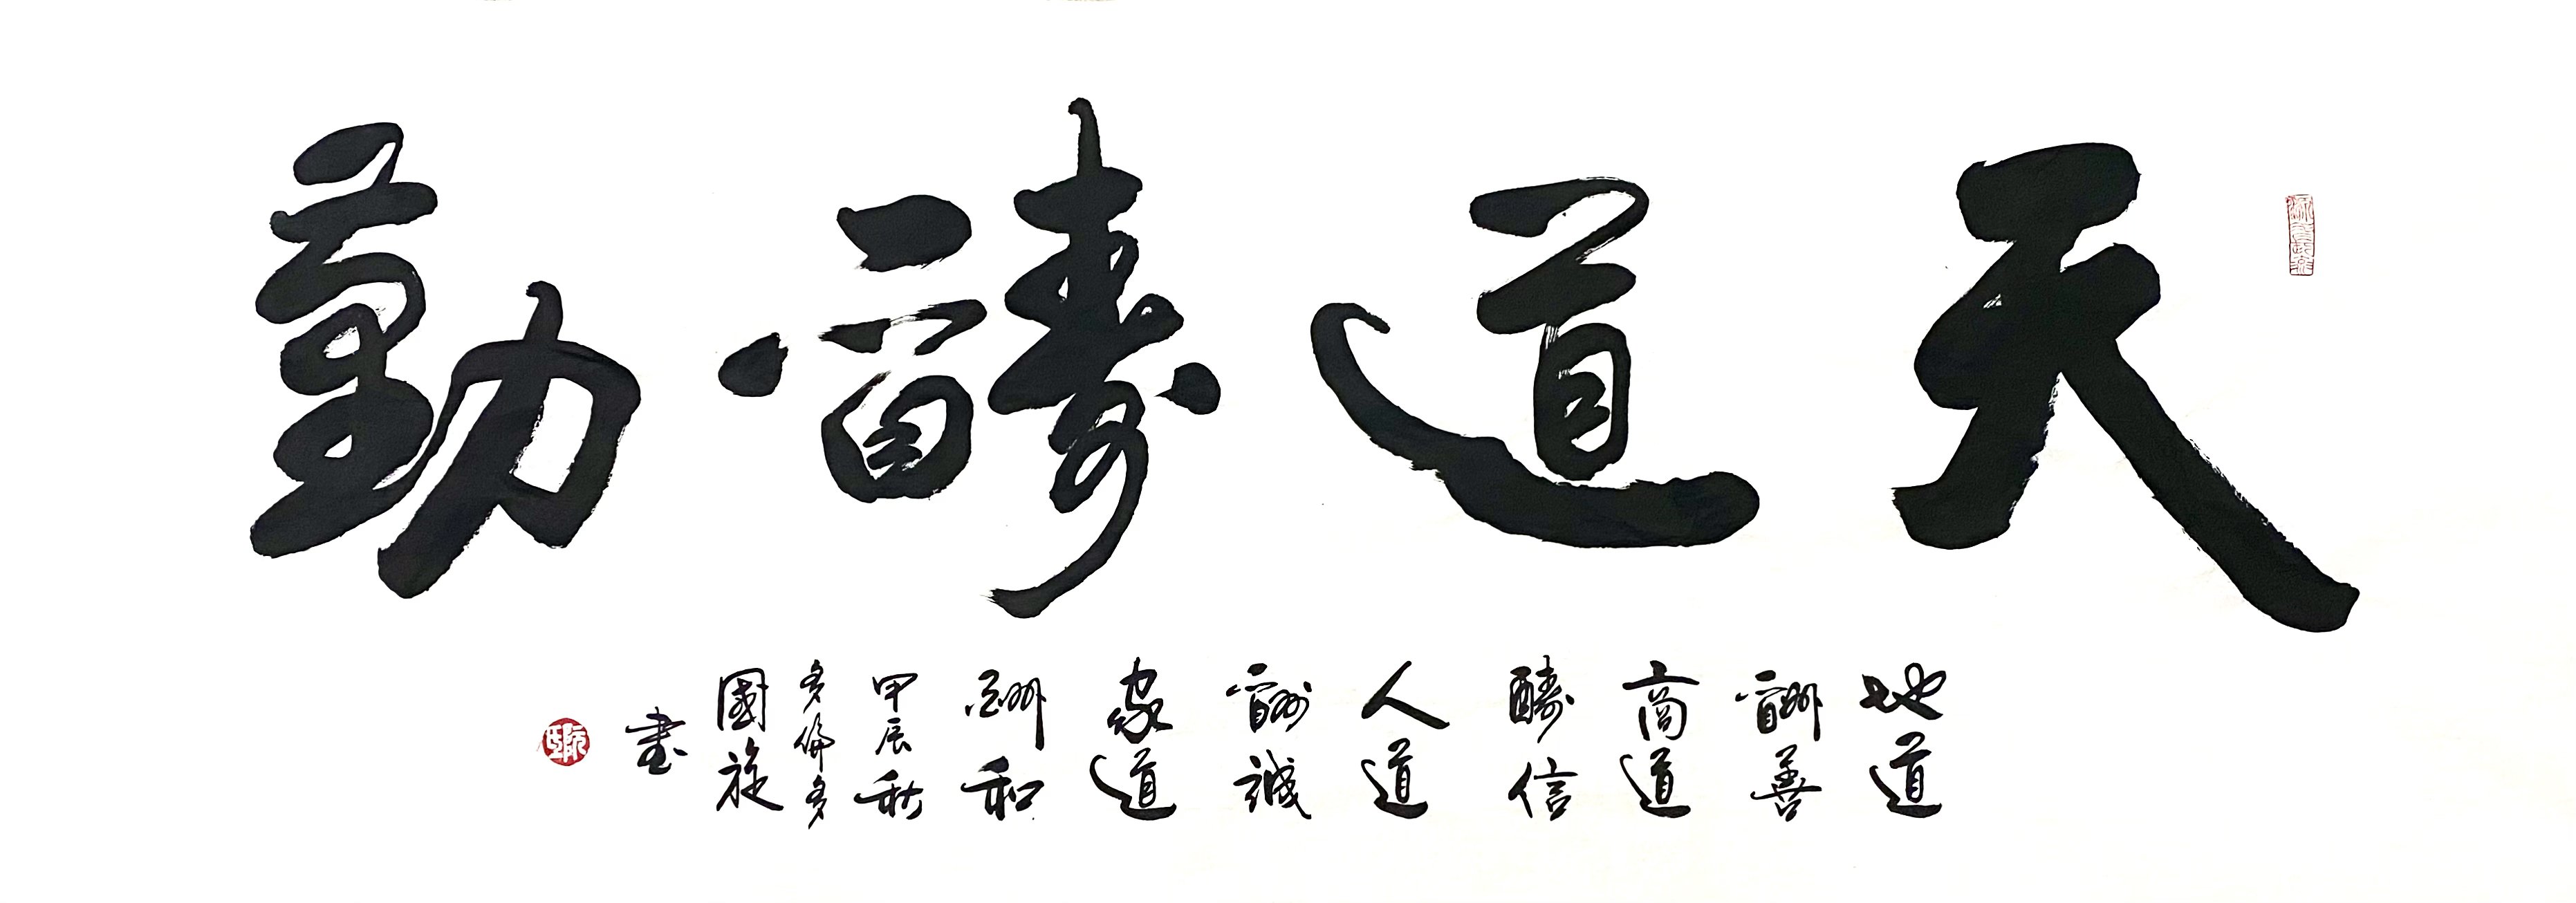 天道醻勤
地道
酬善
商道
醻信
人道
酬誠
家道
酬和
甲辰秋
多倫多
國旋
書